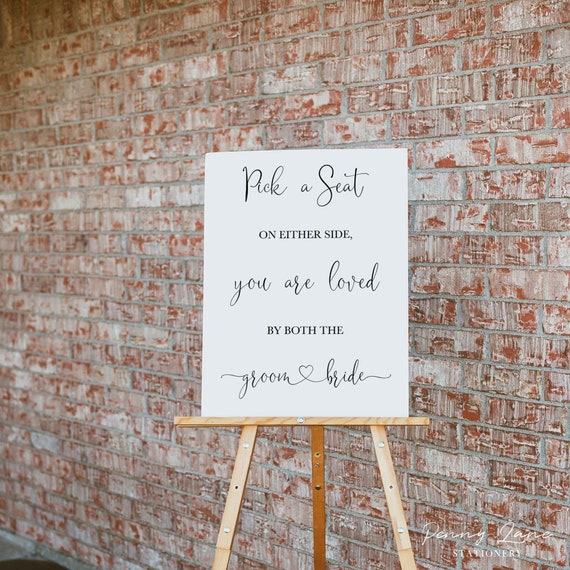 Pick a Seat
ON EITHER SIDE,
you are loved
BY BOTH THE
groom♡bride
Penny Jane
STATIONERY